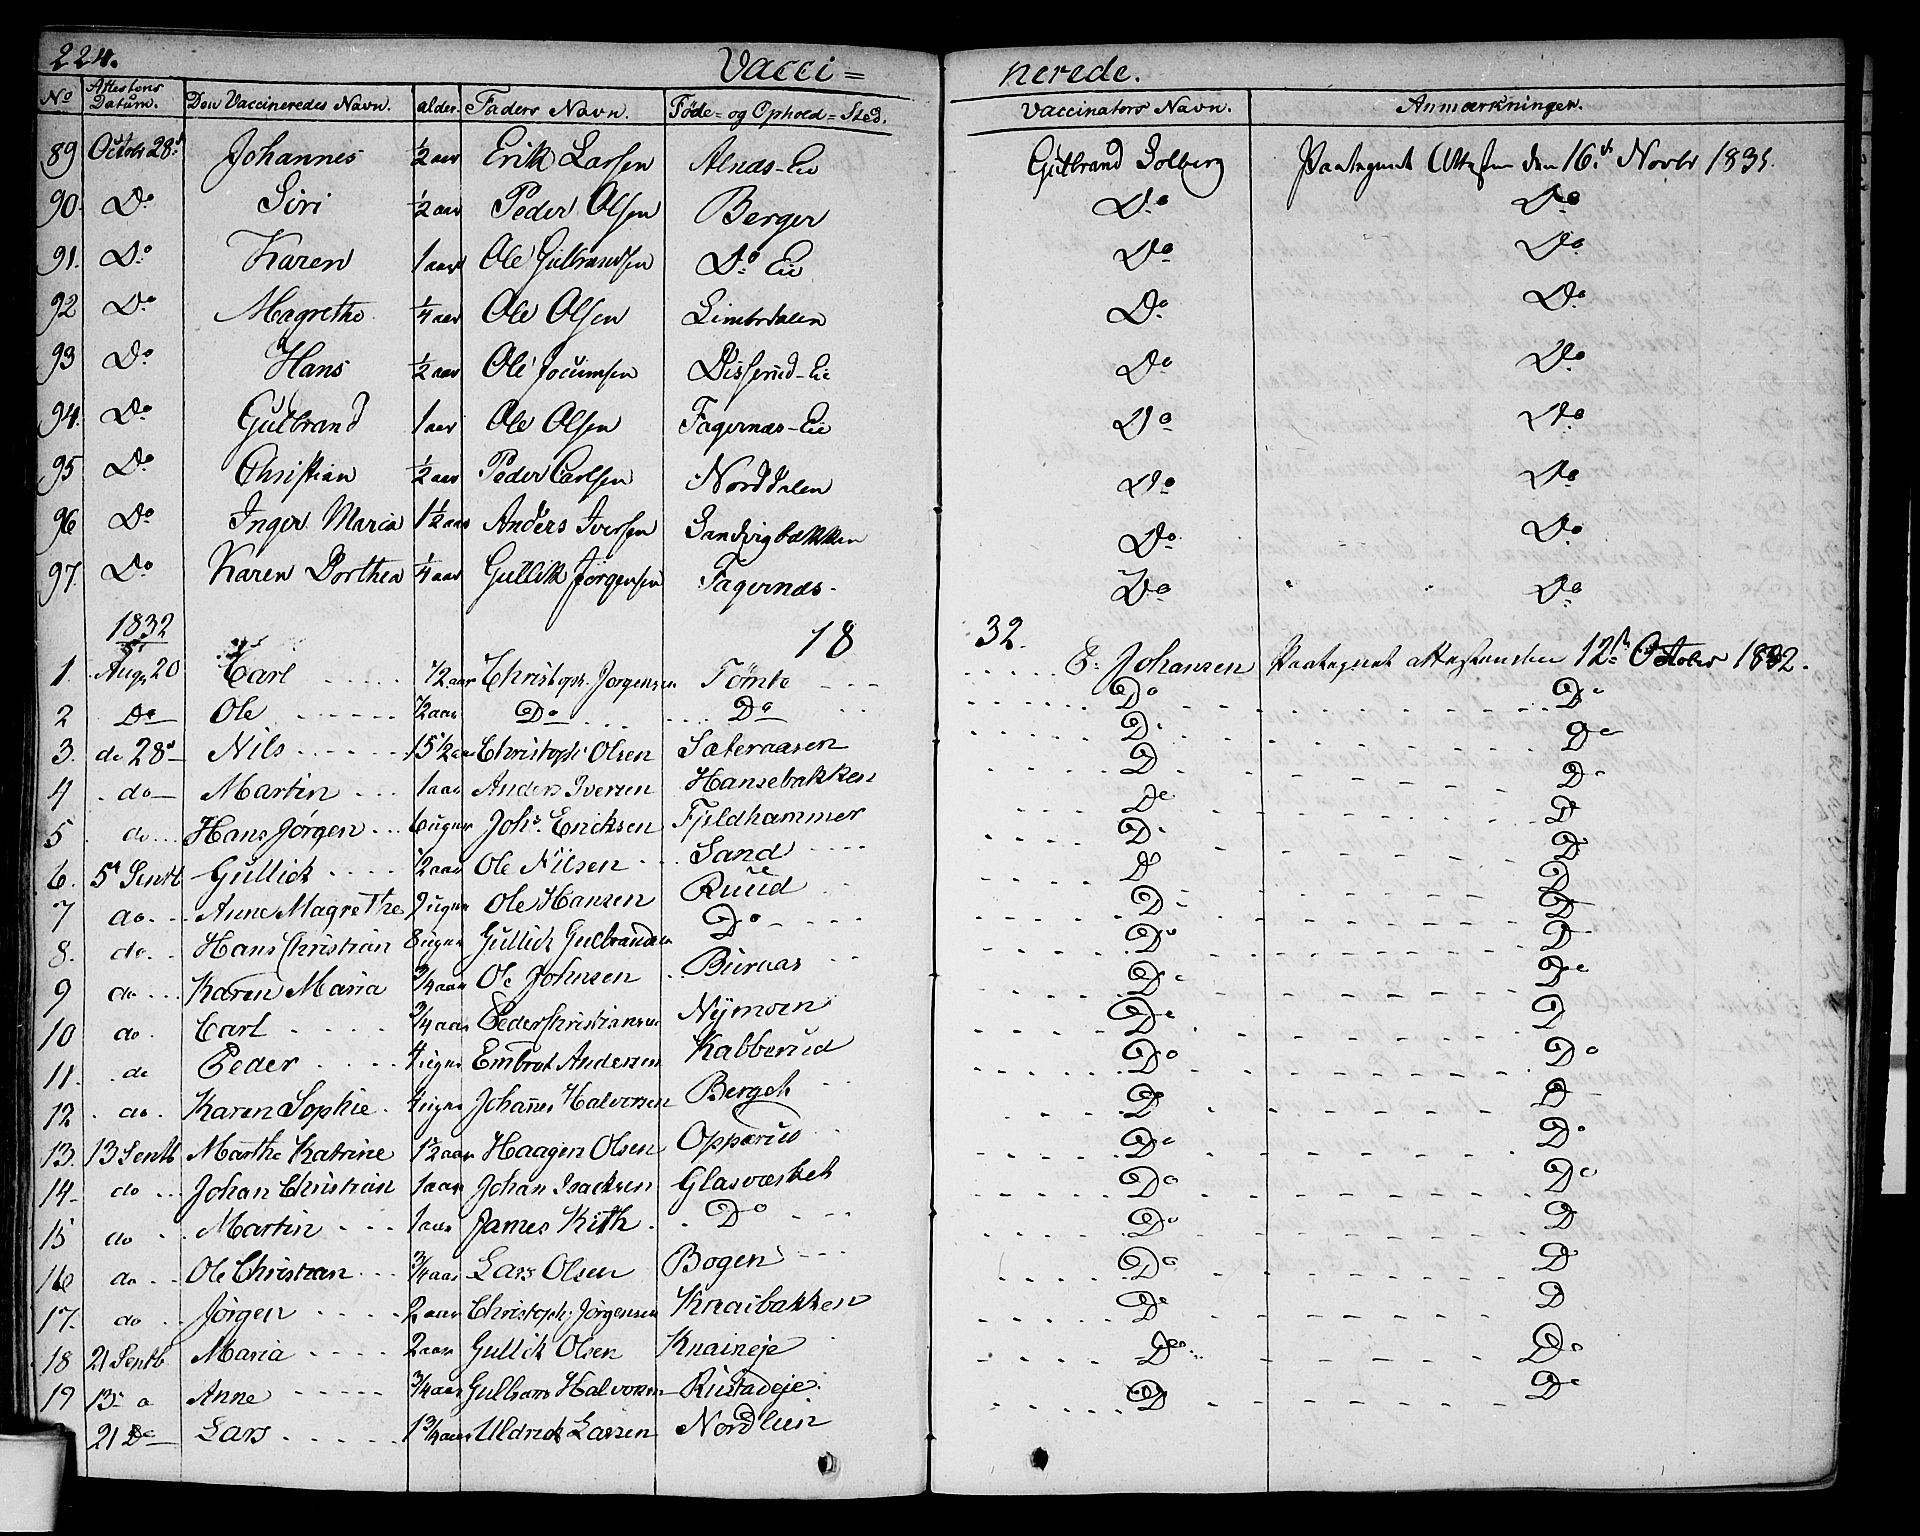 224.
Vacci= nerede.
No | Attestens Datum. | Den Vaccineredes Navn. | alder. | Faders Navn. | Føde= og Ophold=Sted. | Vaccinators Navn. | Anmærkninger.
89 | Octobr 28d | Johannes | 1/2 aar | Erik Larsen | Alnæs-Eie | Gulbrand Solberg | Paategnet Attesten den 16d Novbr 1831.
90. | Do | Siri | 1/2 aar | Peder Olsen | Berger | Do | Do
91. | Do | Karen | 1 aar | Ole Gulbrandsen | Do Eie | Do | Do
92 | Do | Magrethe | 1/4 aar | Ole Olsen | Limbrdalen | Do | Do
93 | Do | Hans | 1/2 aar | Ole Jocumsen | Disserud-Eie | Do | Do
94. | Do | Gulbrand | 1 aar | Ole Olsen | Fagernæs-Eie | Do | Do
95 | Do | Christian | 1/2 aar | Peder Carlsen | Norddalen | Do | Do
96 | Do | Inger Maria | 1 1/2 aar | Anders Iversen | Sandvigbækken | Do | Do
97. | Do | Karen Dorthea | 1/4 aar | Gullik Jørgensen | Fagernæs. | Do | Do
1832 | 18 32.
1. | Aug. 20 | Carl | 1/2 aar | Christoph. Jørgensen | Tømte | Johansen | Paategnet attestenden 12te October 1832.
2 | Do | Ole | 1/2 aar | Do | Do | Do | Do
3. | do 28d | Nils | 15 1/2 aar | Christoph. Olsen | Sæteraasen | Do | Do
4 | do | Martin | 1 aar | Anders Iversen | Hansebakken | D | Do
5 | do | Hans Jørgen | 6 uger | Johs. Ericksen | Fjeldhammer | Do | D
6. | 5d Septb | Gullick | 1/2 aar | Ole Nilsen | Sand | Do | D
7 | do | Anne Magrethe | 9 uger | Ole Hansen | Ruud | D | D
8. | do | Hans Christian | 8 uger | Gullick Gulbrandsen | Do | Do | D
9 | do | Karen Maria | 3/4 aar | Ole Johnsen | Buraas | Do | D
10 | do | Carl | 3/4 aar | Peder Christiansen | Nymoen | Do | Do
11. | do | Peder | 4 uger | Embret Andersen | Kabberud | Do | D
12. | do | Karen Sophie | 4 uger | Johannes Halvorsen | Bergeh | Do | Do
13. | 13 Septb | Marthe Katrine | 1 1/2 aar | Haagen Olsen | Opperud | Do | D
14. | do | Johan Christian | 1 aar | Johan Isacksen | Glasværket | Do | Do
15 | do | Martin | 1 aar | James Kith | Do | Do | Do
16 | do | Ole Christian | 3/4 aar | Lars Olsen | Bogen | Do | D
17. | do | Jørgen | 2 aar | Christoph. Jørgensen | Knaibakken | Do | D
18 | 21 Septb | Maria | 2 aar | Gullick Olsen | Knaineje | Do | D
19 | 13 | Anne | 3/4 aar | Gulbran Halvorsen | Rustadeje | Do | Do
21 Do | Lars | 1 3/4 aar | Uldrick Larsen | Nordlien | D | Do